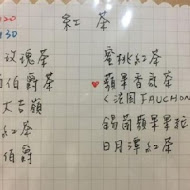 20
30
紅茶
玫瑰茶
伯爵茶
大吉嶺
紅茶
伯爵
蜜桃紅茶
蘋果香頌茶
<法國FAUCHON
錫蘭蘋果
日月潭紅茶